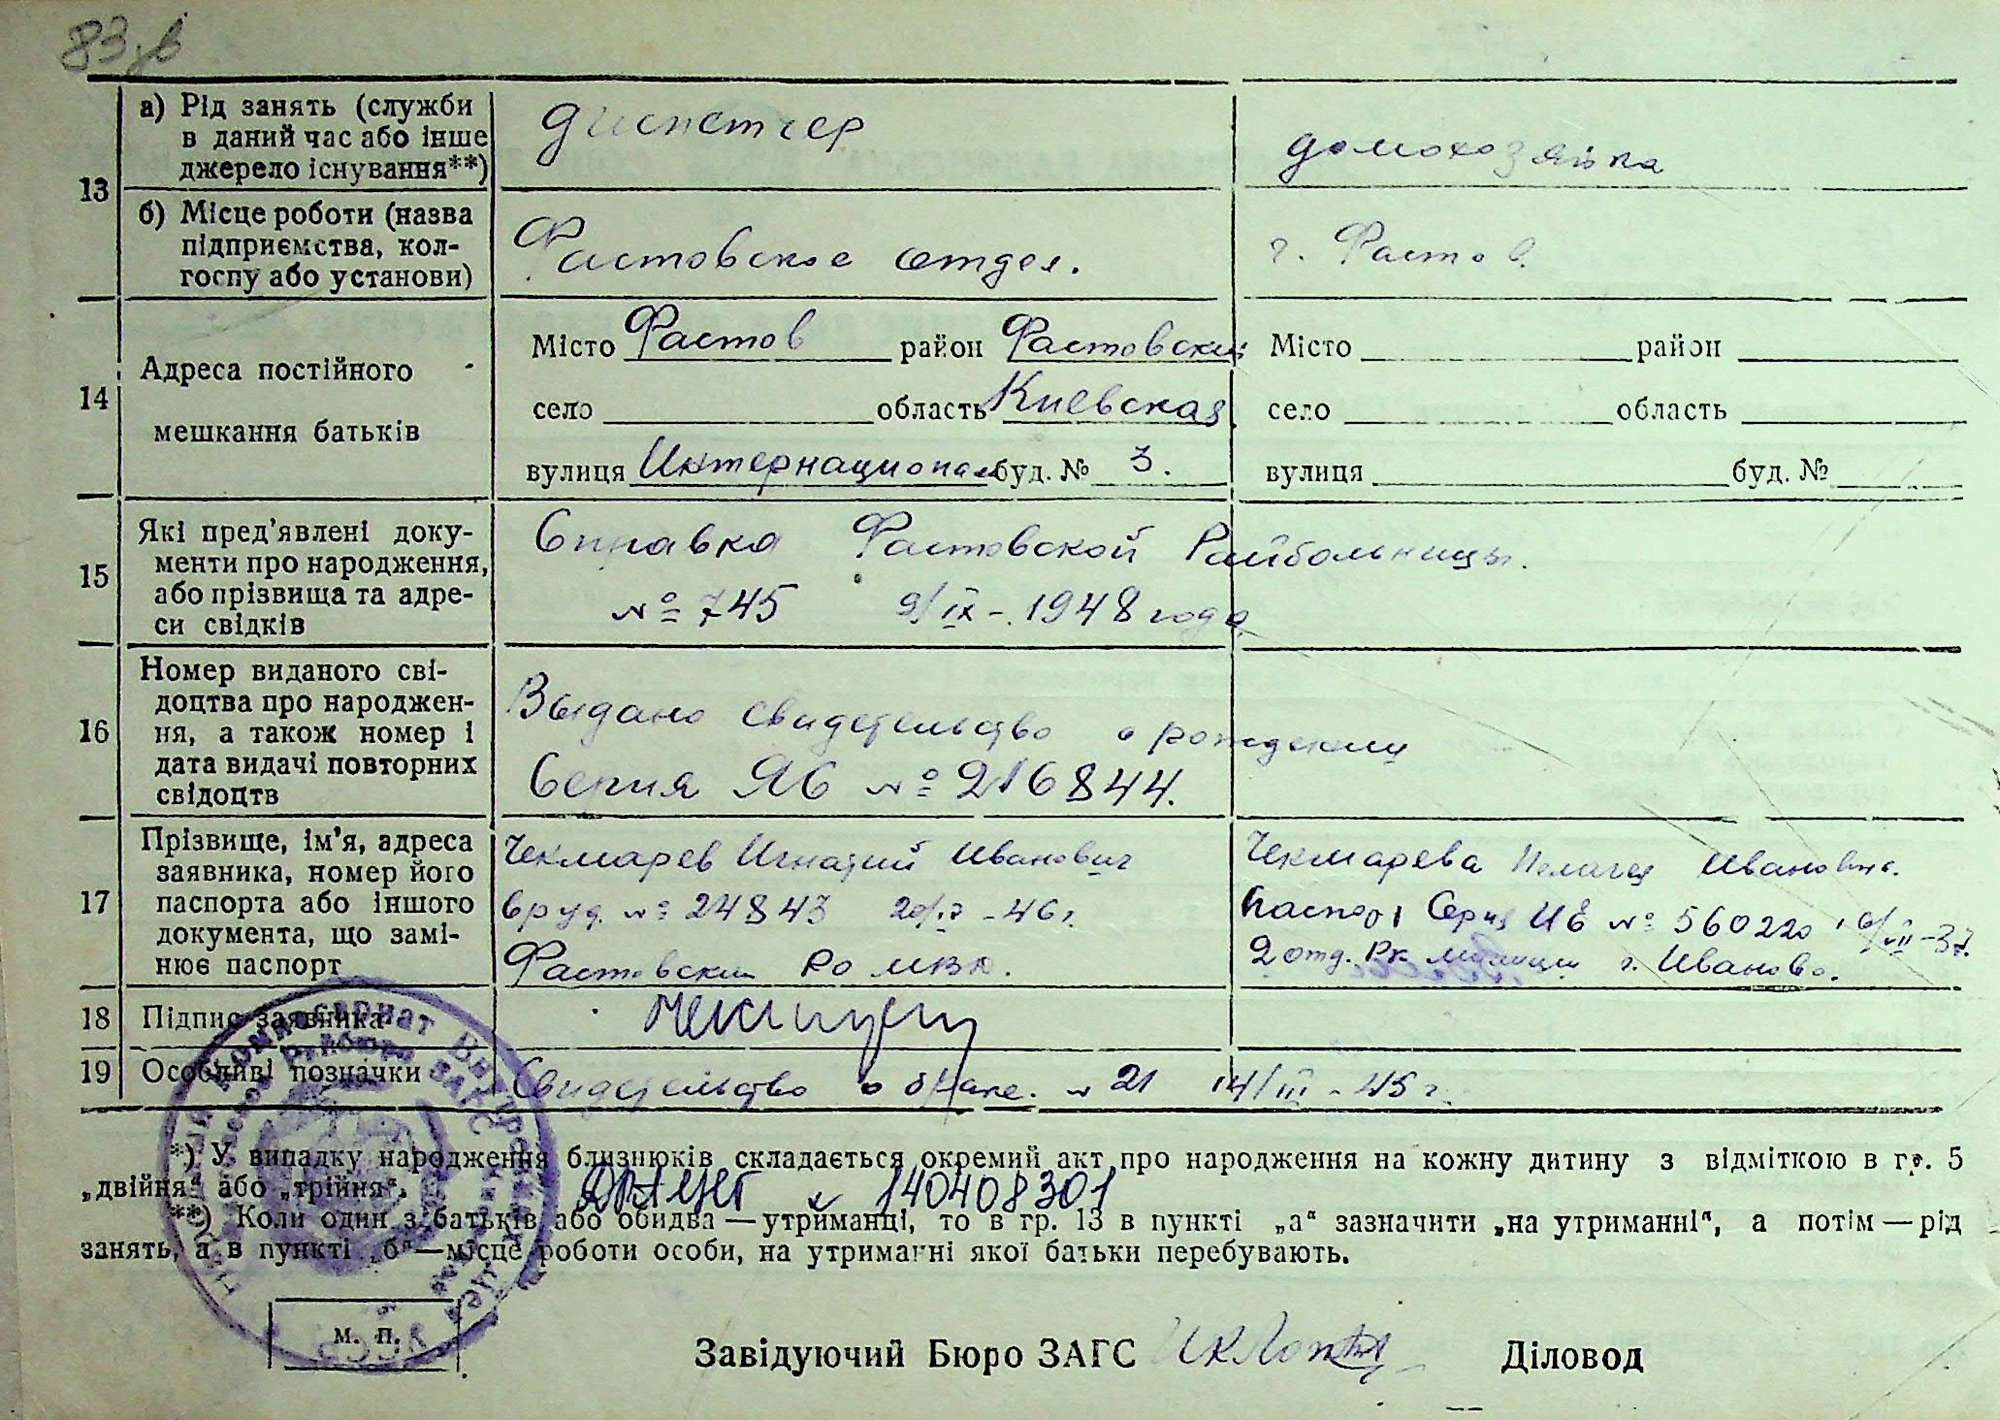 83
13
а) Рід занять (служби
в даний час або інше
джерело існування**)
диспетчер
домохозяйка
б) Місце роботи (назва
підприємства, кол-
госпу або установи)
Фастовское отдел.
г. Фастов.
14
Адреса постійного
мешкання батьків
Місто Фастов район Фастовский
село область Киевская
вулиця Интернационал буд. № 3.
Місто район
село область
вулиця буд. №
15
Які пред'явлені доку-
менти про народження,
або прізвища та адре-
си свідків
Справка Фастовской Райбольницы.
№ 745 9/IX-1948 года
16
Номер виданого сві-
доцтва про народжен-
ня, а також номер і
дата видачі повторних
свідоцтв
Выдано свидетельство о рождении
Серия ЯБ № 216844.
17
Прізвище, ім'я, адреса
заявника, номер його
паспорта або іншого
документа, що замі-
нює паспорт
Чекмарев Игнатий Иванович
в руд. № 24843 -46 г.
Фастовский РО МВД.
Чекмарева Пелагея Ивановна.
паспорт Серия № 560220 -37.
2 отд. Рк милиции г. Иваново.
18
Підпис заявника
19
Особливі позначки
Свидетельство о браке. № 21 14/III-45 г.
*) У випадку народження близнюків складається окремий акт про народження на кожну дитину з відміткою в гр. 5
„двійня“ або „трійня“.
№ 140408301
**) Коли один з батьків або обидва — утриманці, то в гр. 13 в пункті „а“ зазначити „на утриманні“, а потім — рід
занять, а в пункті „б“ — місце роботи особи, на утриманні якої батьки перебувають.
м. п.
Завідуючий Бюро ЗАГС
Діловод